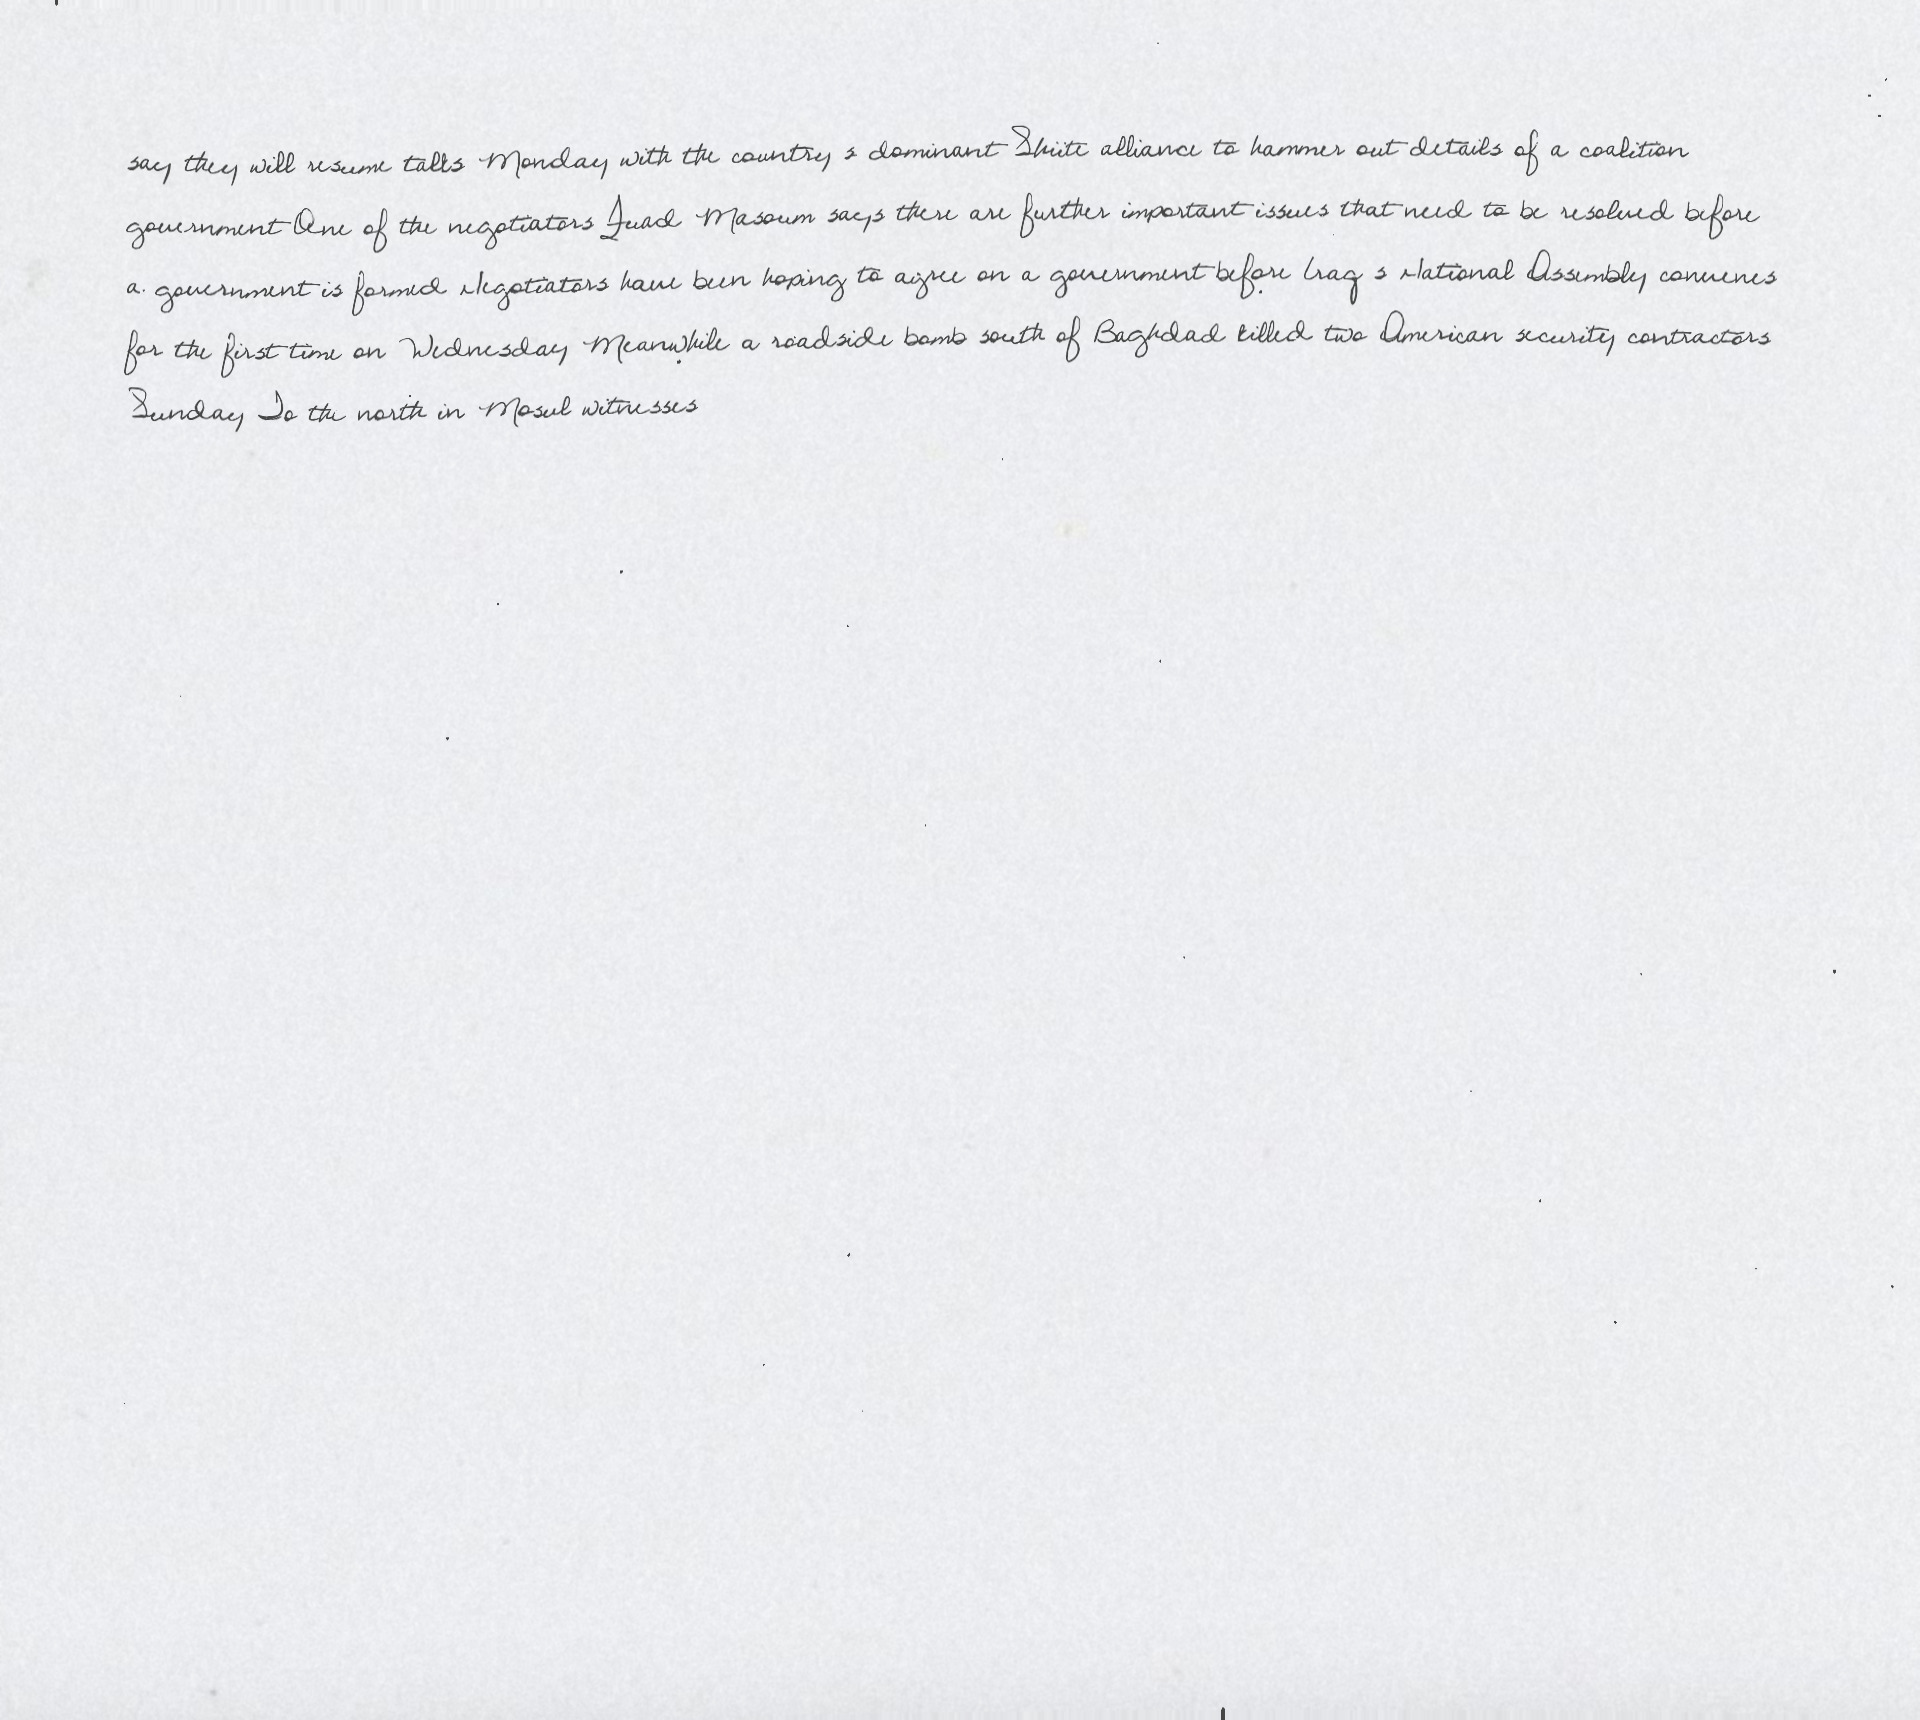 say they will resume talks Monday with the country s dominant Shiite alliance to hammer out details of a coalition
government One of the negotiators Fuad Masoum says there are further important issues that need to be resolved before
a government is formed Negotiators have been hoping to agree on a government before Iraq s National Assembly convenes
for the first time on Wednesday Meanwhile a roadside bomb south of Baghdad killed two American security contractors
Sunday To the north in Mosul witnesses